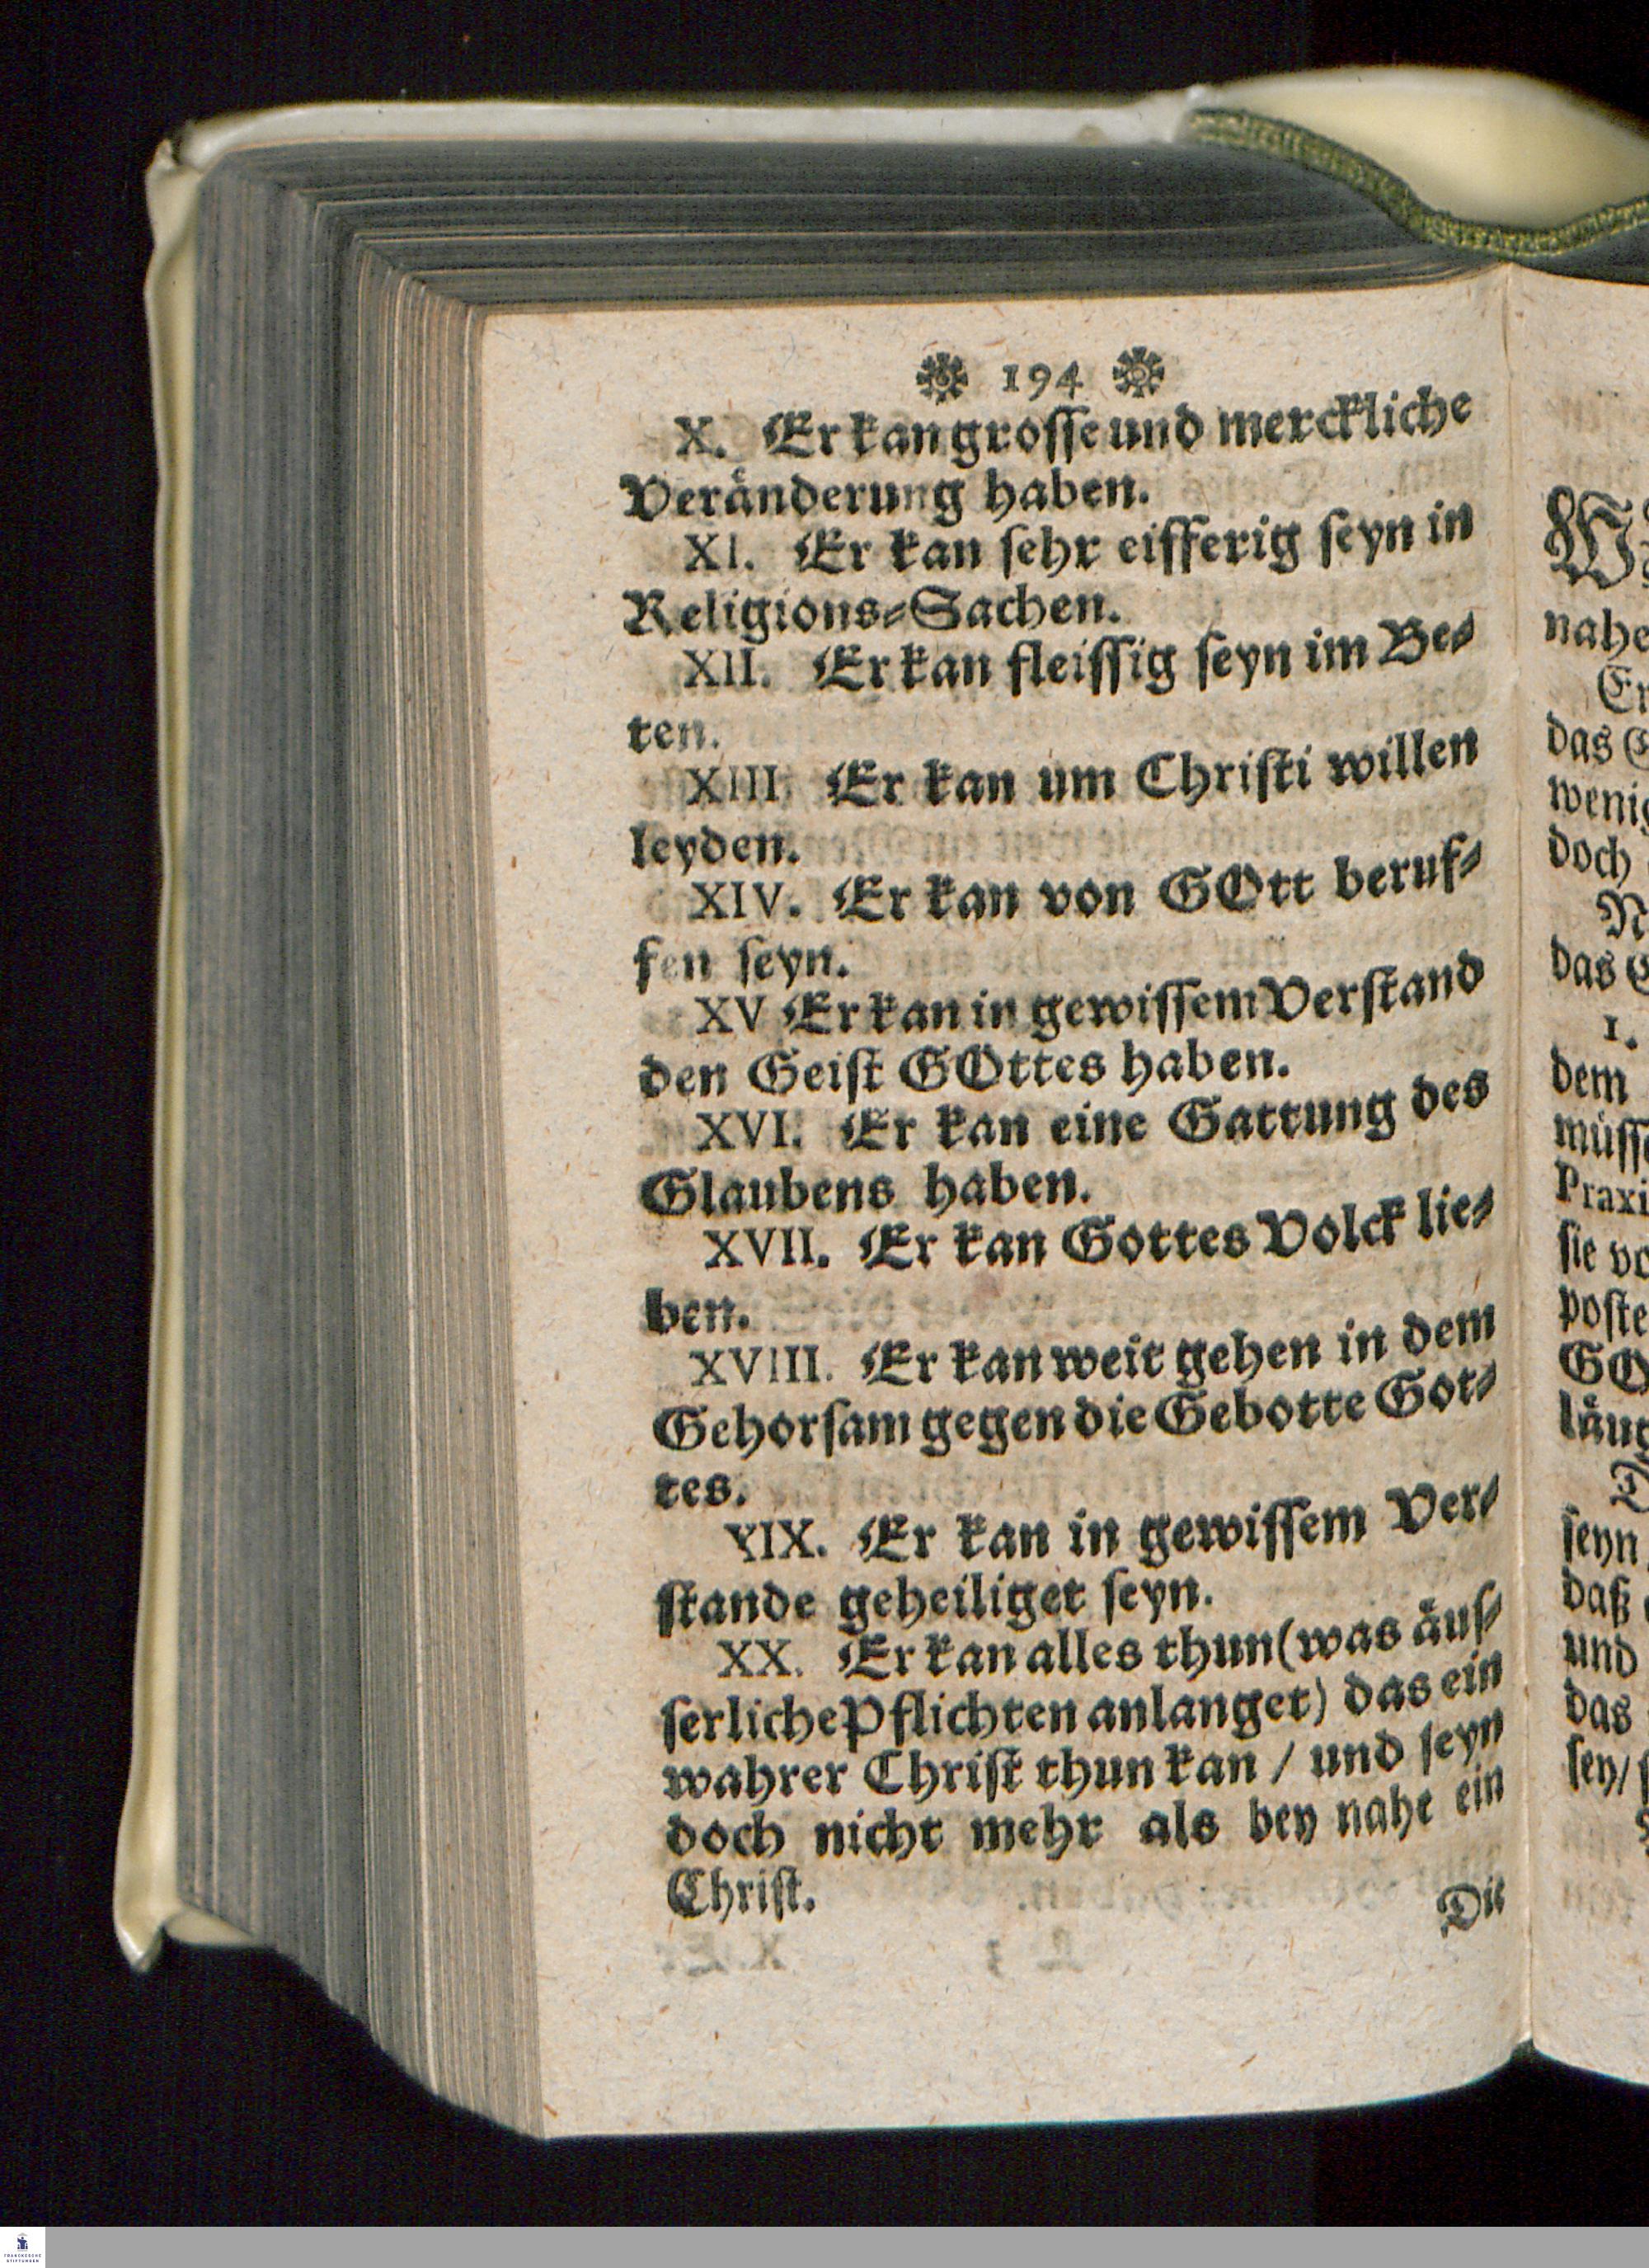 194
X. Er kan grosse und merckliche
Veränderung haben.
XI. Er kan sehr eifferig seyn in
Religions-Sachen.
XII. Er kan fleissig seyn im Be-
ten.
XIII. Er kan um Christi willen
leyden.
XIV. Er kan von GOtt beruf-
fen seyn.
XV Er kan in gewissem Verstand
den Geist GOttes haben.
XVI. Er kan eine Gattung des
Glaubens haben.
XVII. Er kan Gottes Volck lie-
ben.
XVIII. Er kan weit gehen in dem
Gehorsam gegen die Gebotte Got-
tes.
XIX. Er kan in gewissem Ver-
stande geheiliget seyn.
XX. Er kan alles thun (was äus-
serliche Pflichten anlanget) das ein
wahrer Christ thun kan / und seyn
doch nicht mehr als bey nahe ein
Christ.
Die
nahe
das
wenig
doch
das
1.
dem
sie
seyn
daß
und
das
sey/
FRANCKESCHE
STIFTUNGEN